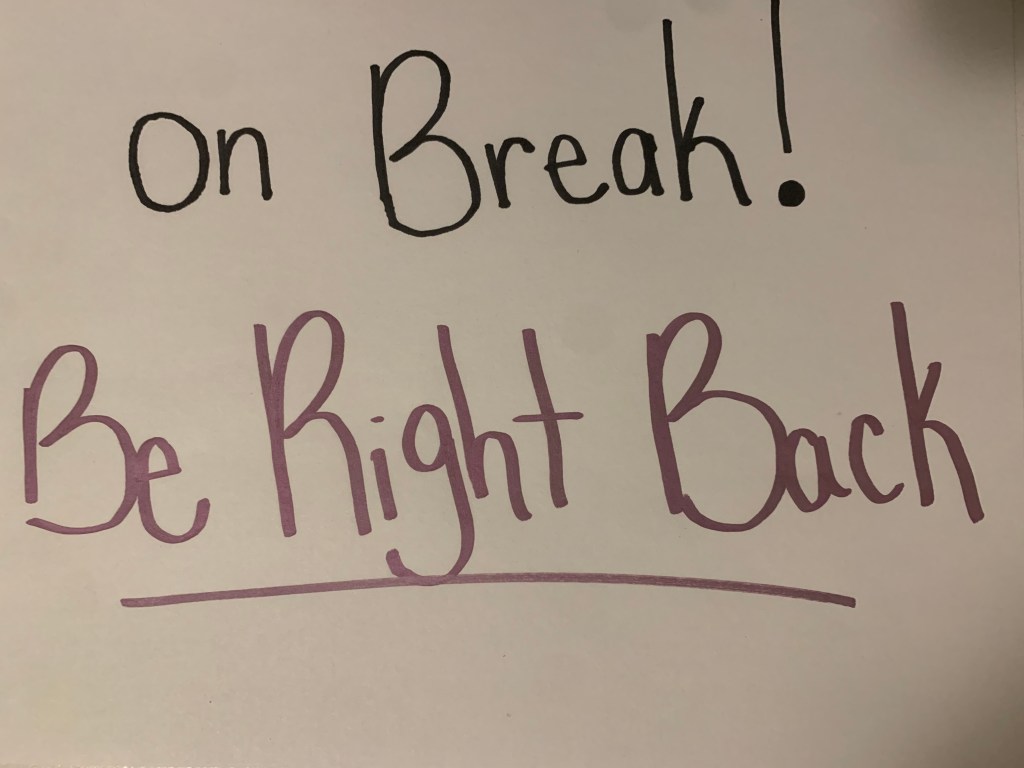 on Break!
Be Right Back